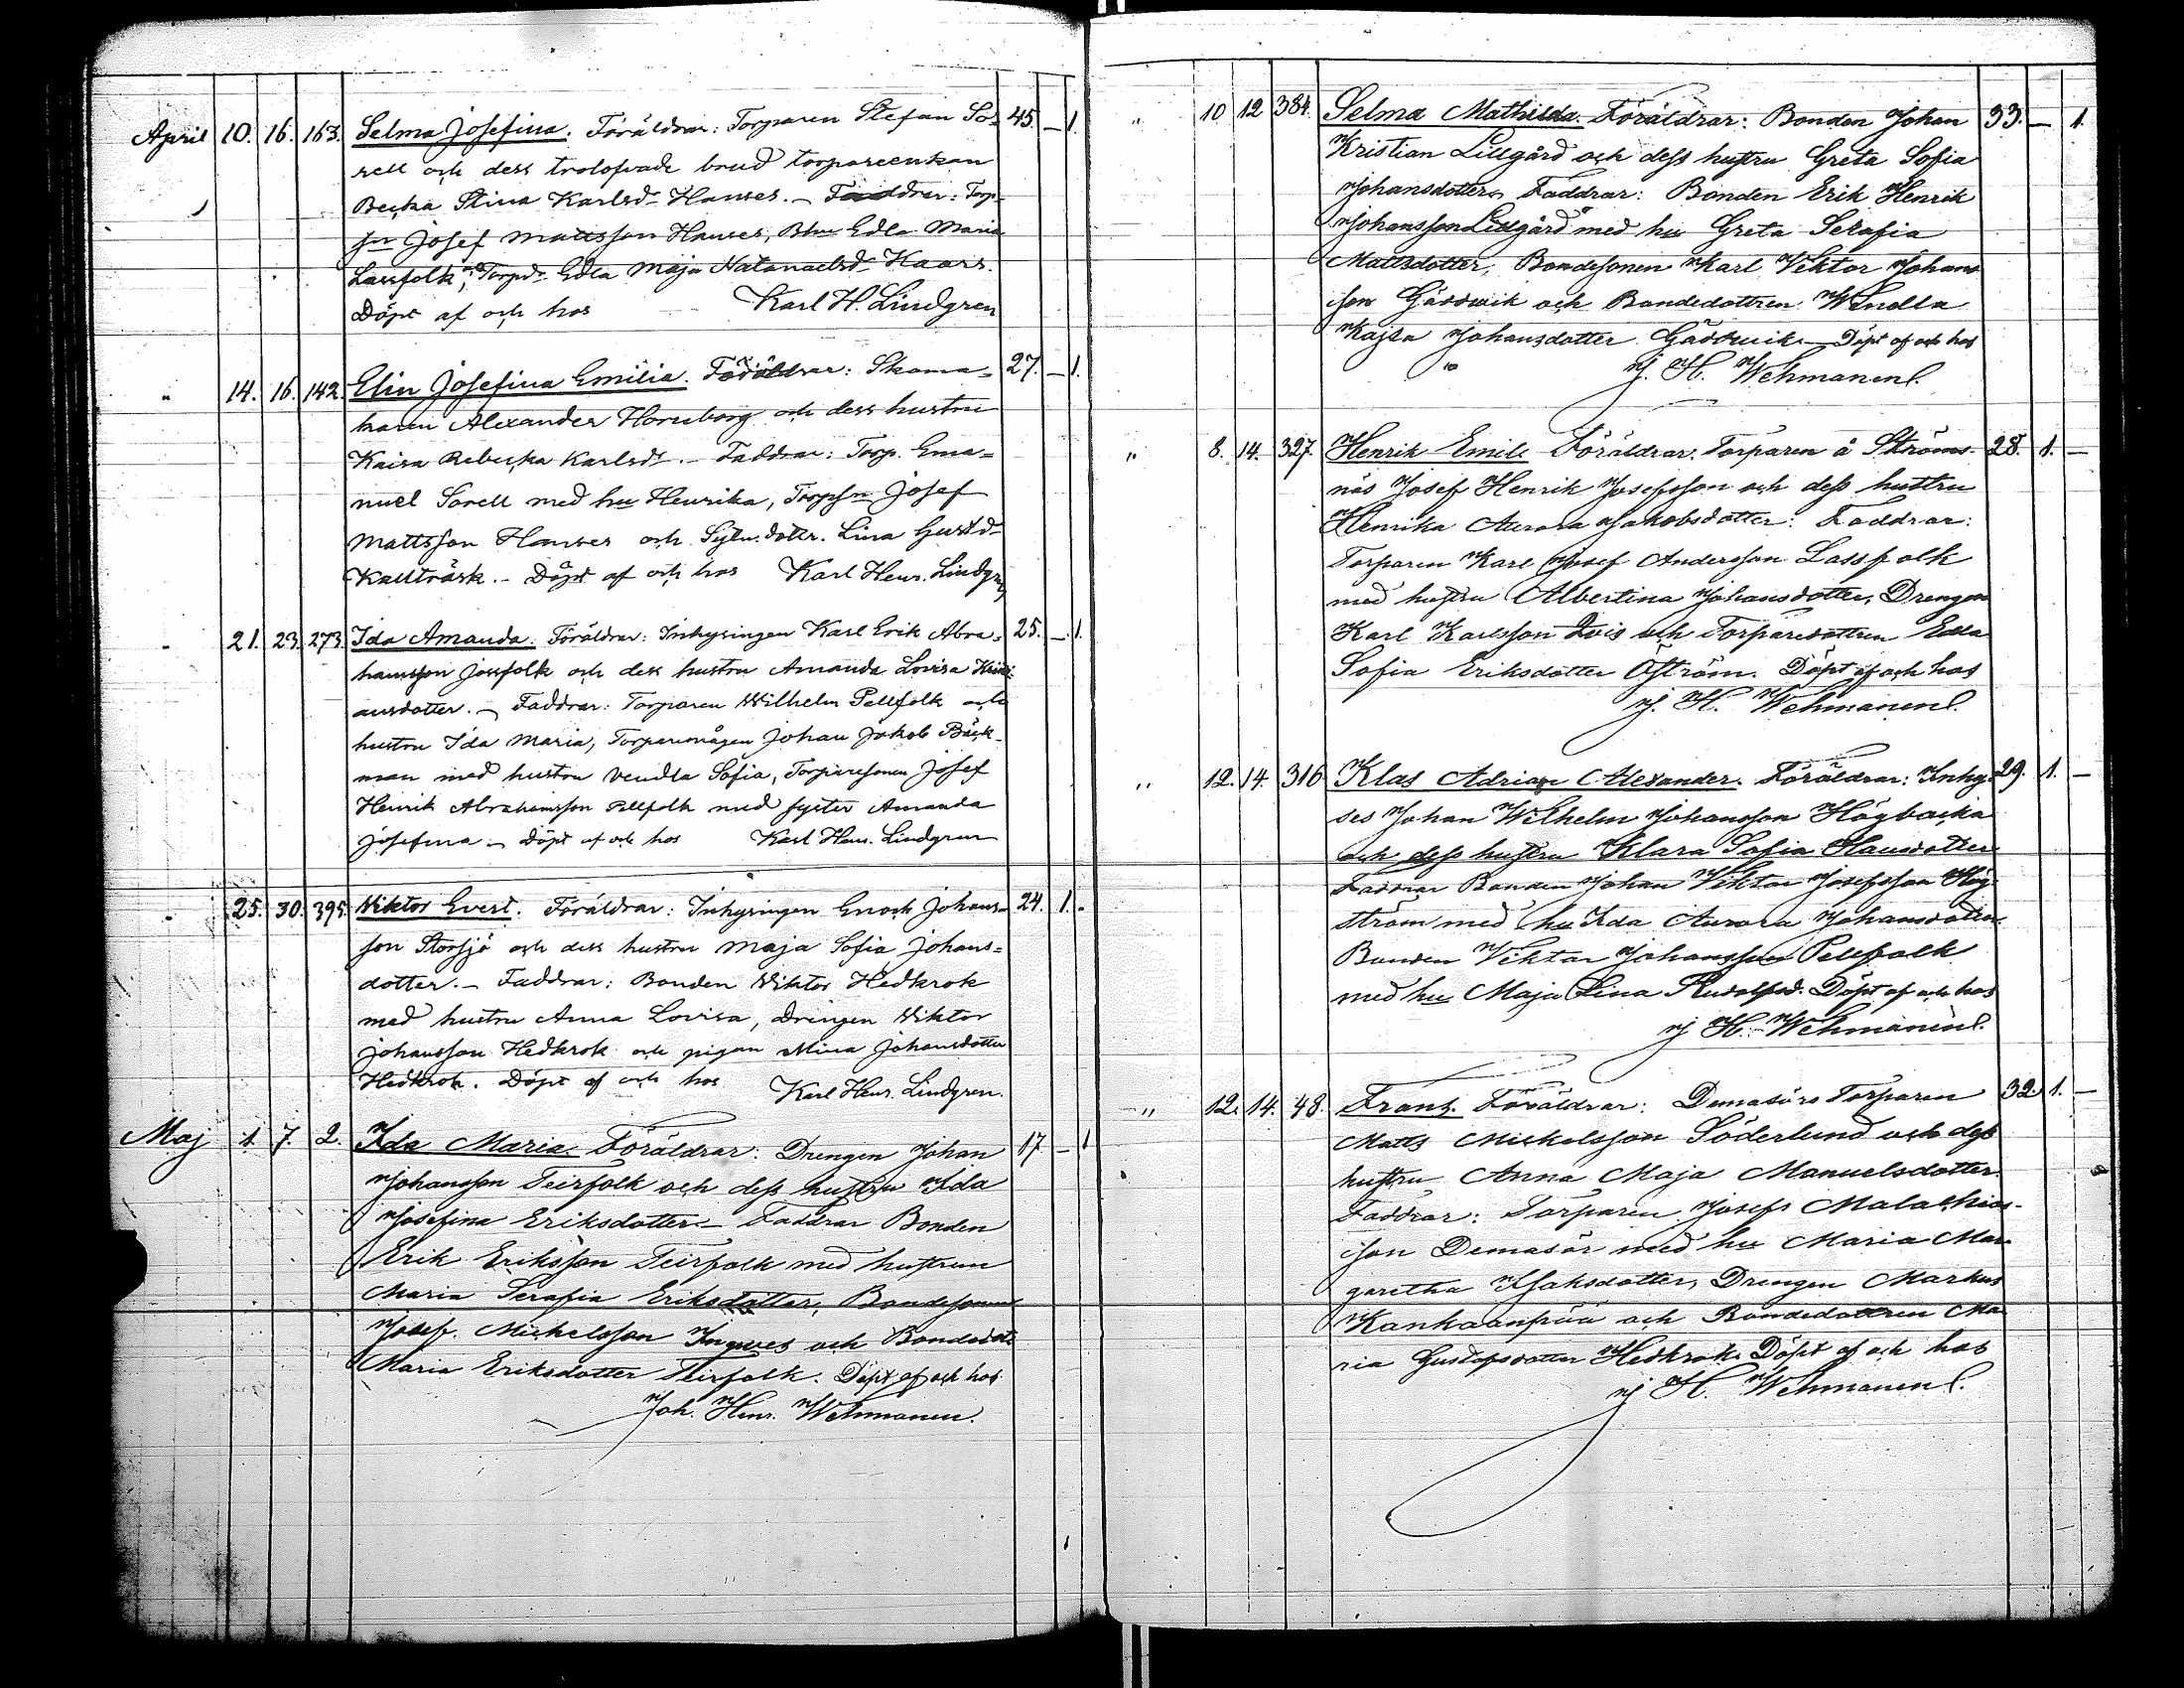 April 10. 16. 163. Selma Josefina. Föräldrar: Torparen Stefan So- 45. — 1.
rell och dess trolofvade brud torpareenkan
Becka Stina Karlsd. Hanses. — Faddrar: Torp-
sn Josef Mattsson Hanses, Bhu Edla Maria
Lassfolk, Torpd. Edla Maja Natanaelsd. Kaars.
Döpt af och hos Karl H. Lindgren
" 14. 16. 142. Elin Josefina Emilia. Föräldrar: Skoma= 27. — 1.
karen Alexander Horneborg och dess hustru
Kaisa Rebecka Karlsdr. — Faddrar: Torp. Ema=
nuel Sorell med hu Henrika, Torpsn Josef
Mattsson Hanses och Sytn. dottr. Lina Gustd.
Kallträsk. — Döpt af och hos Karl Henr. Lindgren
" 21. 23. 273. Ida Amanda. Föräldrar: Inhysingen Karl Erik Abra= 25. — 1.
hamsson Josfolk och dess hustru Amanda Lovisa
ansdotter. — Faddrar: Torparen Wilhelm Pellfolk och
hustru Ida Maria, Torparemågen Johan Jakob Bäck-
man med hustru Vendla Sofia, Torparesonen Josef
Henrik Abrahamsson Pellfolk med syster Amanda
Josefina — Döpt af och hos Karl Henr. Lindgren
" 25. 30. 395. Viktor Evert. Föräldrar: Inhysingen Enock Johans- 24. 1. -
son Storsjö och dess hustru Maja Sofia Johans=
dotter. — Faddrar: Bonden Viktor Hedkrok
med hustru Anna Lovisa, drengen Viktor
Johansson Hedkrok och pigan Mina Johansdotter
Hedkrok. Döpt af och hos Karl Henr. Lindgren.
Maj 1. 7. 2. Ida Maria. Föräldrar: Drengen Johan 17 — 1
Johansson Teirfolk och dess hustru Ida
Josefina Eriksdotter — Faddrar Bonden
Erik Eriksson Teirfolk med hustrun
Maria Serafia Eriksdotter, Bondesonen
Josef Mickelsson Ingves och Bondedotr
Maria Eriksdotter Teirfolk. Döpt af och hos
Joh. Henr. Wehmanen.
" 10 12 384. Selma Mathilda. Föräldrar: Bonden Johan 33. — 1.
Kristian Lillgård och dess hustru Greta Sofia
Johansdotter. Faddrar: Bonden Erik Henrik
Johansson Lillgård med hu Greta Serafia
Mattsdotter, Bondesonen Karl Viktor Johans
son Gärdvik och Bondedottren Wendla
Kajsa Johansdotter Gärdvik — Döpt af och hos
J. H. Wehmanen.
" 8. 14. 327. Henrik Emil. Föräldrar: Torparen å Ströms- 28. 1. —
näs Josef Henrik Josefsson och dess hustru
Henrika Aurora Jakobsdotter: Faddrar:
Torparen Karl Josef Andersson Lassfolk
med hustru Albertina Johansdotter, Drengen
Karl Karlsson Qvis och Torparedottren Edla
Sofia Eriksdotter Åström. Döpt af och hos
J. H. Wehmanen.
" 12. 14. 316 Klas Adrian Alexander. Föräldrar: Inhy- 29. 1. —
ses Johan Wilhelm Johansson Högbacka
och dess hustru Klara Sofia Hansdotter
Faddrar Bonden Johan Viktor Josefsson Hög-
ström med hu Ida Aurora Johansdotter
Bonden Viktor Johansson Pellfolk
med hu Maja Lina Rudolfsd. Döpt af och hos
J H. Wehmanen.
" 12. 14. 48. Frans. Föräldrar: Demasörs Torparen 32. 1. —
Matts Mickelsson Söderlund och dess
hustru Anna Maja Manuelsdotter.
Faddrar: Torparen Josef Malachias-
son Demasör med hu Maria Mar-
garetha Isaksdotter, Drengen Markus
Kankaanpää och Bondedottren Ma-
ria Gustafsdotter Hedkrok. Döpt af och hos
J H. Wehmanen.